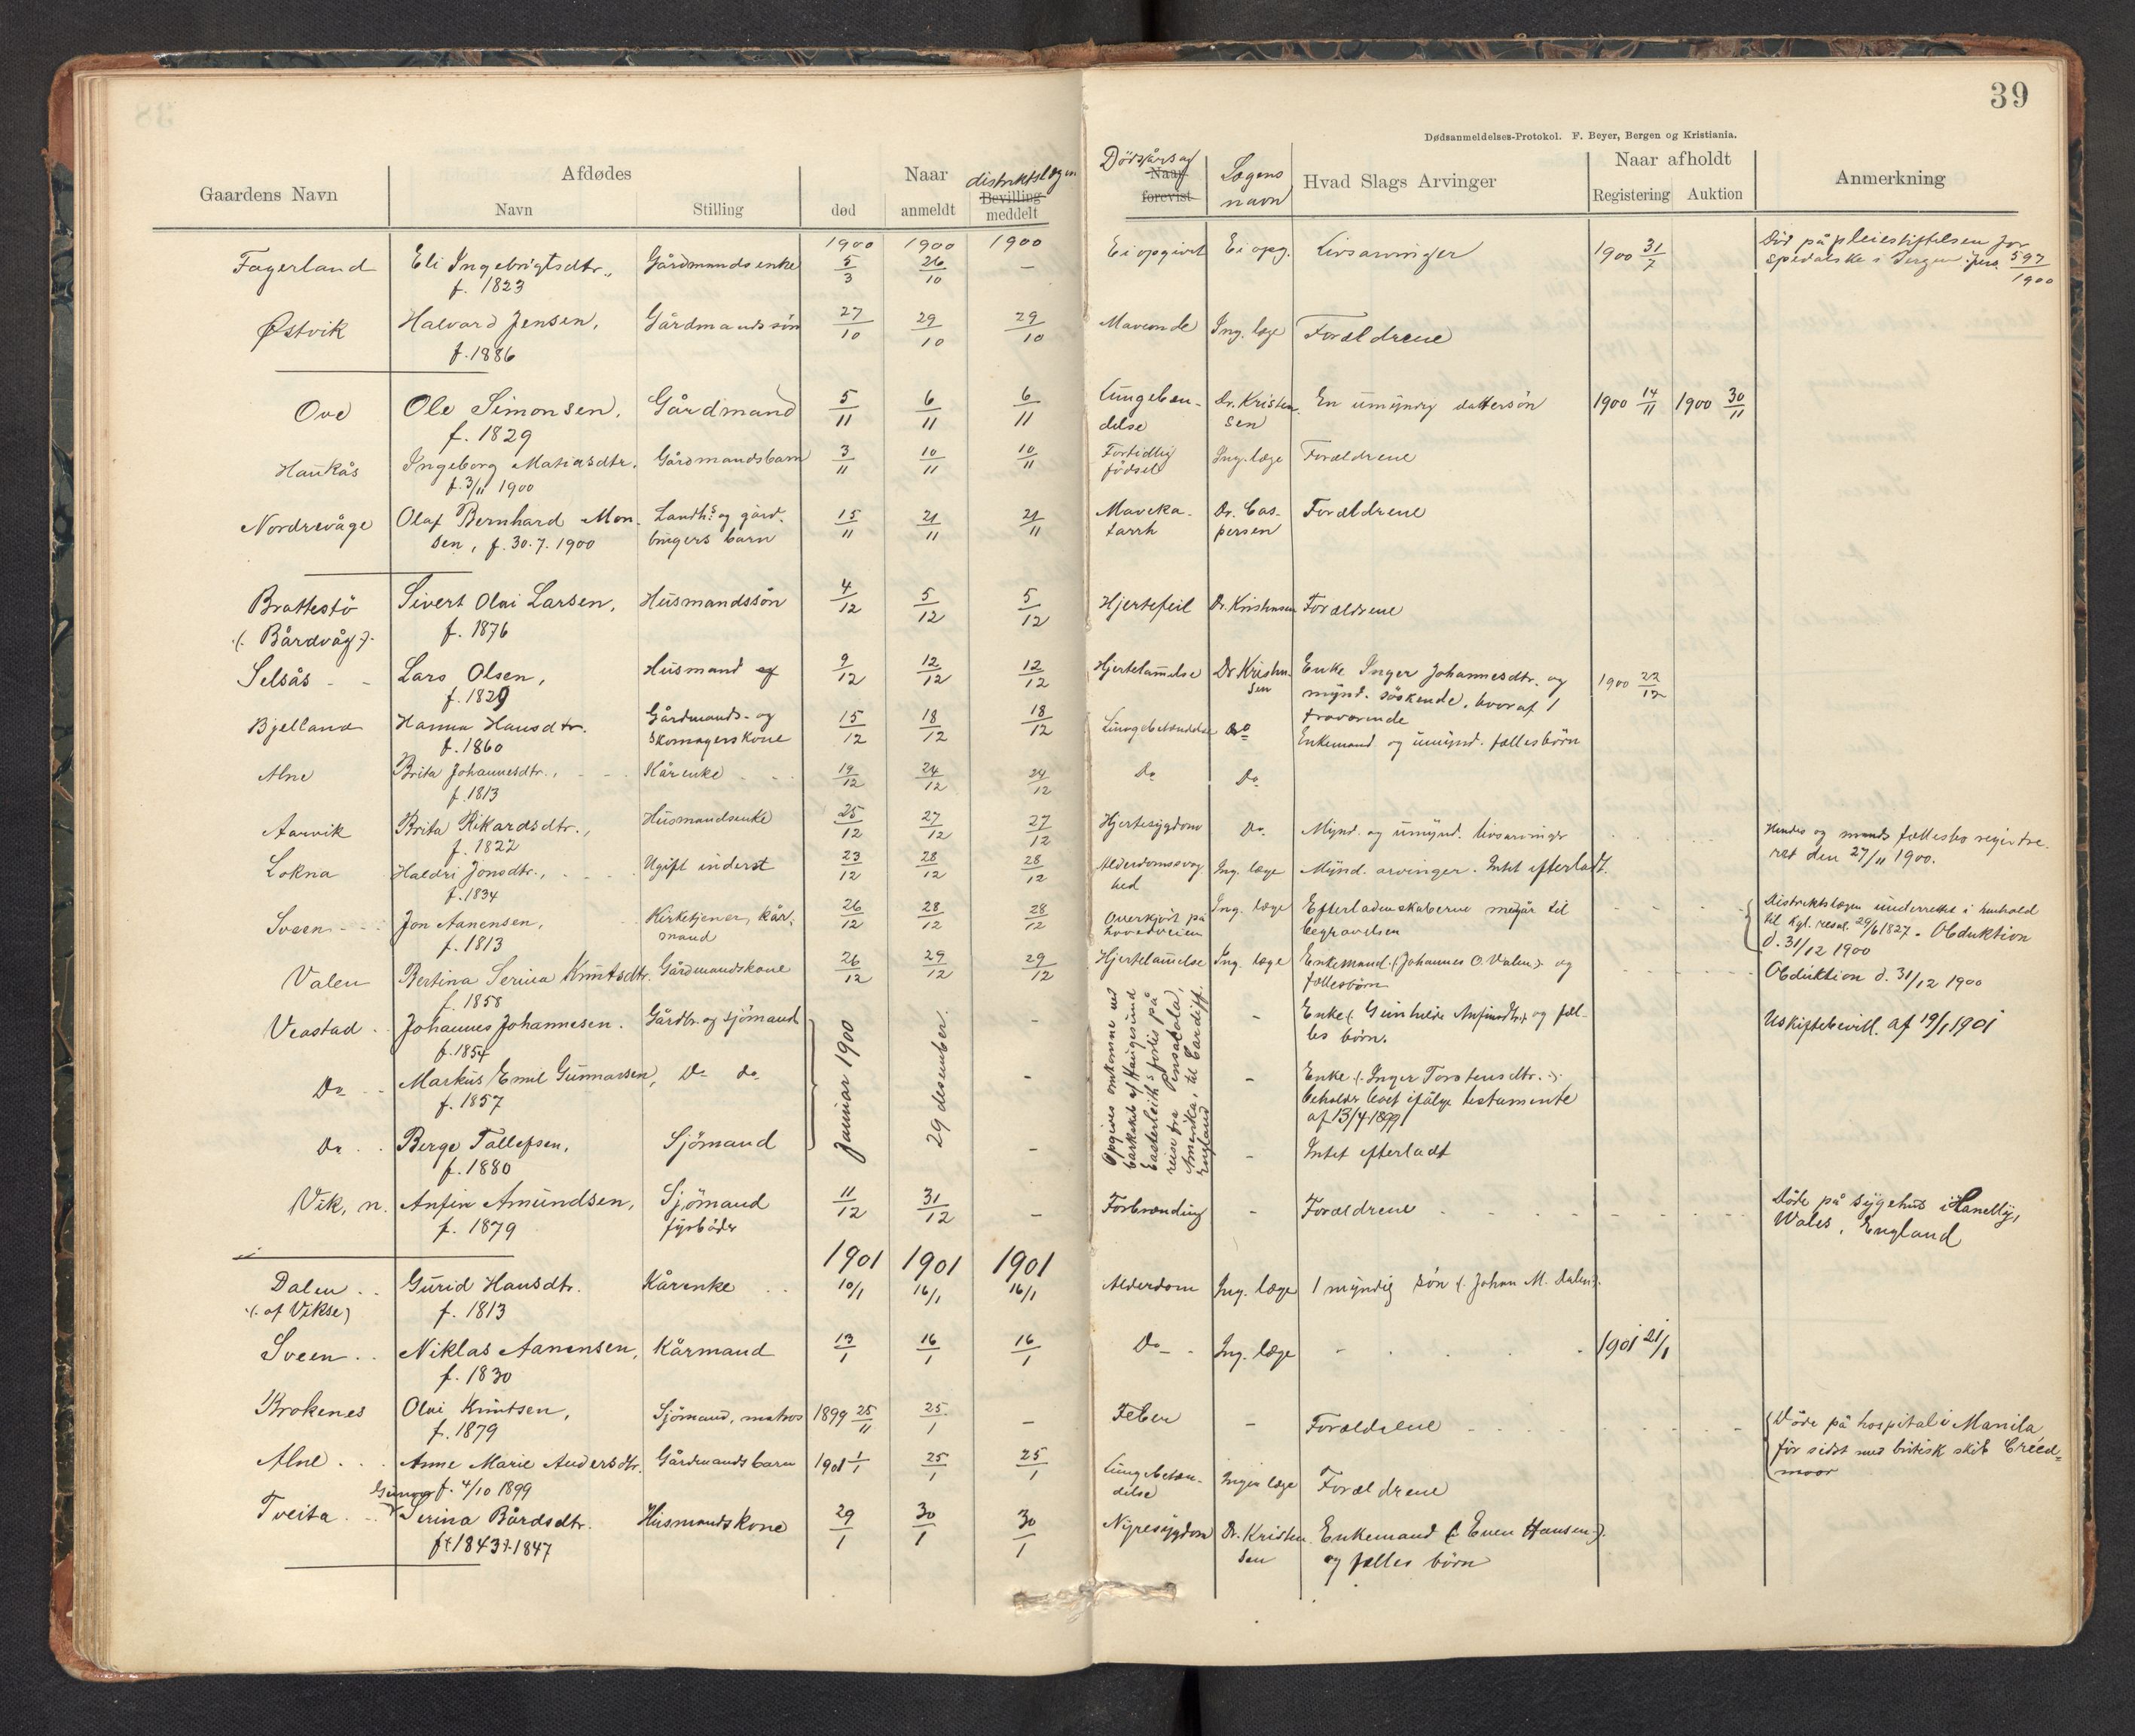 39
Dødsanmeldelses-Protokol. F. Beyer, Bergen og Kristiania.
Gaardens Navn
Afdødes
Navn
Stilling
Naar
død
anmeldt
distriktslægen
Bevilling
meddelt
Dödsårsag
Naar
forevist
Lægens
navn
Hvad Slags Arvinger
Naar afholdt
Registering
Auktion
Anmerkning
1900 1900 1900
Fagerland Eli Ingebrigtsdtr., Gårdmandsenke 5/3 26/10 — Ei opgivet Ei opg. Livsarvinger 1900 31/7 Död på pleiestiftelsen for
f. 1823 spedalske i Bergen. Jurs. 597/1900
Østvik Halvard Jensen, Gårdmandssön 27/10 29/10 29/10 Maveonde Ing. læge Forældrene
f. 1886
Ove Ole Simonsen, Gårdmand 5/11 6/11 6/11 Lungebæn- Dr. Kristen- En umyndig dattersön 1900 14/11 1900 30/11
f. 1829 delse sen
Haukås Ingeborg Matiasdtr. Gårdmandsbarn 3/11 10/11 10/11 Fortidlig Ing. læge Forældrene
f. 3/11 1900 födsel
Nordrevåge Olaf Bernhard Mon- Landh.s og gård- 15/11 21/11 21/11 Maveka- Dr. Cas- Forældrene
sen, f. 30.7.1900 brugers barn tarrh persen
Brattestö Sivert Olai Larsen, Husmandssön 4/12 5/12 5/12 Hjertefeil Dr. Kristensen Forældrene
(: Bårdvåg :) f. 1876
Selsås Lars Olsen, Husmand og 9/12 12/12 12/12 Hjertelam̄else Dr Kristen- Enke Inger Johannesdtr. og 1900 22/12
f. 1829 sen mynd. söskende, hvoraf 1
fraværende
Bjelland Hanna Hansdtr. Gårdmands- og 15/12 18/12 18/12 Lungebetændelse Do Enkemand og umynd. fællesbörn
f. 1860 skomagerskone
Alne Brita Johannesdtr., Kårenke 19/12 24/12 24/12 Do Do
f. 1813
Aarvik Brita Rikardsdtr., Husmandsenke 25/12 27/12 27/12 Hjertesygdom Do Mynd. og umynd. livsarvinger Hendes og mands fællesbo registre-
f. 1822 ret den 27/11 1900.
Lokna Haldri Jonsdtr., Ugift inderst 23/12 28/12 28/12 Alderdomssvag- Ing. læge Mynd. arvinger. Intet efterladt.
f. 1834 hed
Sveen Jon Aanensen, Kirketjener, kår- 26/12 28/12 28/12 Overkjört på Ing. læge Efterladenskaberne medgår til Distriktslægen underrettet i henhold
f. 1813 mand hovedveien begravelsen til kgl. resol. 29/6 1827. Obduktion
d. 31/12 1900
Valen Bertina Serina Knutsdtr. Gårdmandskone 26/12 29/12 29/12 Hjertelam̄else Ing. læge Enkemand (: Johannes O. Valen :) og Obduktion d. 31/12 1900
f. 1858 fællesbörn
Veastad Johannes Johannesen. Gårdbr. og sjömand Januar 1900 29 desember. — — Enke (: Gunhilde Anfinsdtr. :) og fæl- Uskiftebevill. af 19/1 1901
f. 1854 les börn.
Opgives omkommet med
barkskib af Haugesund
Easterleith's forlis på
reise fra Pensacola,
Amerika, til Cardiff,
England
Do Markus Emil Gunnarsen, Do do — — Enke (: Inger Torstensdtr. :)
f. 1857 beholder boet ifölge testamente
af 13/4 1899
Do Berge Tollefsen, Sjömand — — Intet efterladt
f. 1880
Vik, n. Anfin Amundsen, Sjömand 11/12 31/12 — Forbrænding — Forældrene Döde på sygehus i Llanelly,
f. 1879 fyrböder Wales, England
1901 1901 1901
Dalen Gurid Hansdtr. Kårenke 10/1 16/1 16/1 Alderdom Ing. læge 1 myndig sön (: Johan M. Dalen :)
(: af Vikse) f. 1813
Sveen Niklas Aanensen, Kårmand 13/1 16/1 16/1 Do Ing. læge 1901 21/1
f. 1830
Brokenes Olai Knutsen, Sjömand, matros 1899 25/11 25/1 — Feber — Forældrene Döde på hospital i Manila
f. 1879 för sidst med britisk skib Creed-
moor
Alne Anne Marie Andersdtr. Gårdmandsbarn 1901 1/1 25/1 25/1 Lungebetæn- Ingen læge Forældrene
f. 4/10 1899 delse
Tveita Serina Bårdsdtr. Husmandskone 29/1 30/1 30/1 Nyresygdom Dr. Kristen- Enkemand (: Even Hansen :)
f. (: 1843 :) 1847 sen og fælles börn